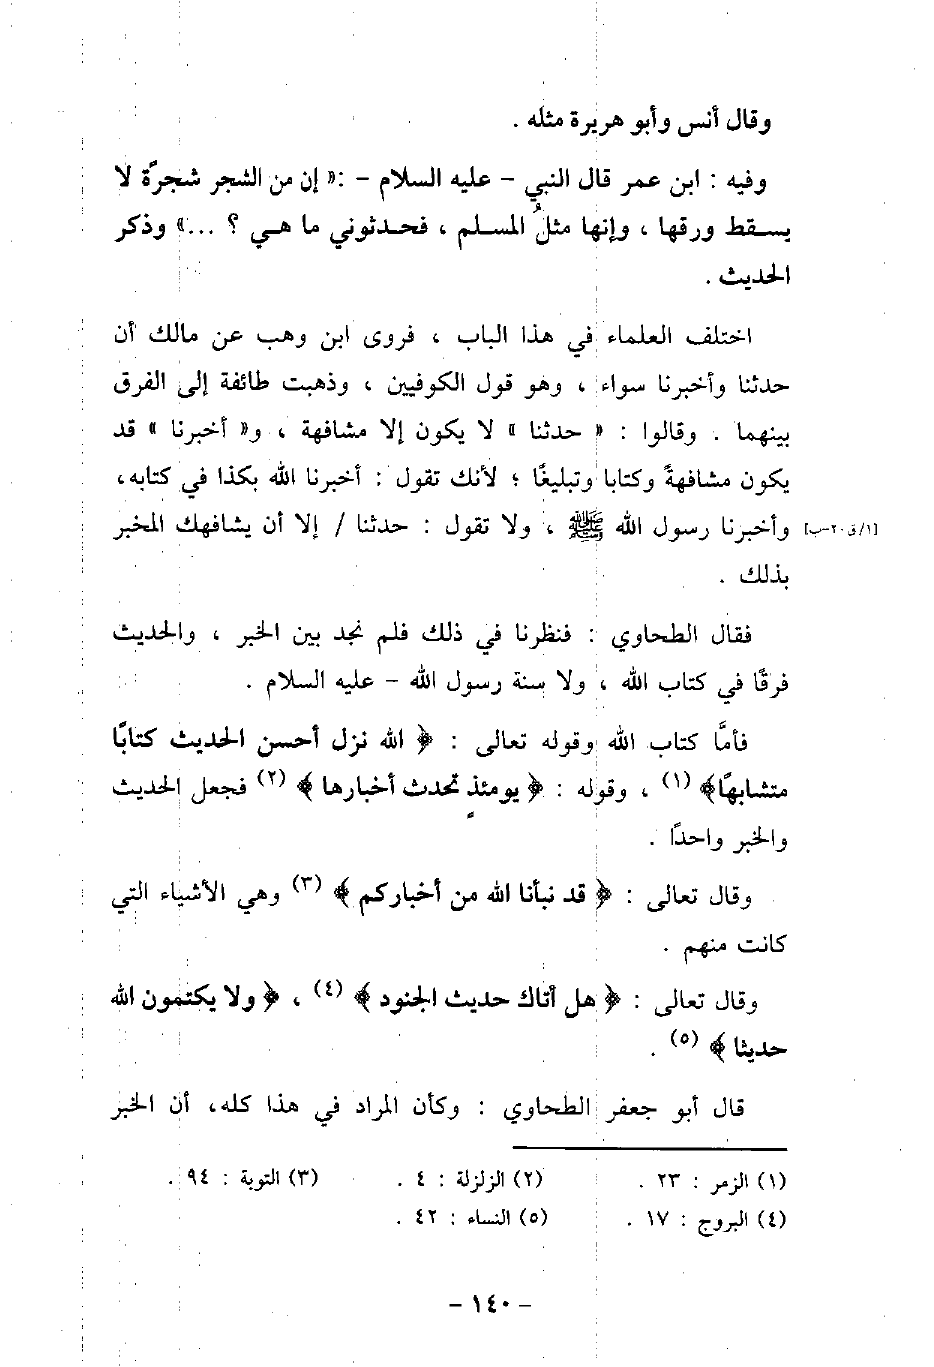 وقال أنس وأبو هريرة مثله .
وفيه : ابن عمر قال النبي - عليه السلام - :« إن من الشجر شجرةً لا
يسقط ورقها ، وإنها مثلُ المسلم ، فحدثوني ما هي ؟ ...» وذكر
الحديث .
اختلف العلماء في هذا الباب ، فروى ابن وهب عن مالك أن
حدثنا وأخبرنا سواء ، وهو قول الكوفيين ، وذهبت طائفة إلى الفرق
بينهما . وقالوا : « حدثنا » لا يكون إلا مشافهة ، و« أخبرنا » قد
يكون مشافهةً وكتابا وتبليغًا ؛ لأنك تقول : أخبرنا الله بكذا في كتابه،
[١/ق٢٠-ب] وأخبرنا رسول الله ﷺ ، ولا تقول : حدثنا / إلا أن يشافهك المخبر
بذلك .
فقال الطحاوي : فنظرنا في ذلك فلم نجد بين الخبر ، والحديث
فرقًا في كتاب الله ، ولا سنة رسول الله - عليه السلام .
فأمَّا كتاب الله وقوله تعالى : ﴿ الله نزل أحسن الحديث كتابًا
متشابهًا﴾ (١) ، وقوله : ﴿ يومئذ تحدث أخبارها ﴾ (٢) فجعل الحديث
والخبر واحدًا .
وقال تعالى : ﴿ قد نبأنا الله من أخباركم ﴾ (٣) وهي الأشياء التي
كانت منهم .
وقال تعالى : ﴿ هل أتاك حديث الجنود ﴾ (٤) ، ﴿ ولا يكتمون الله
حديثا ﴾ (٥) .
قال أبو جعفر الطحاوي : وكأن المراد في هذا كله، أن الخبر
(١) الزمر : ٢٣ . (٢) الزلزلة : ٤ . (٣) التوبة : ٩٤ .
(٤) البروج : ١٧ . (٥) النساء : ٤٢ .
- ١٤٠ -